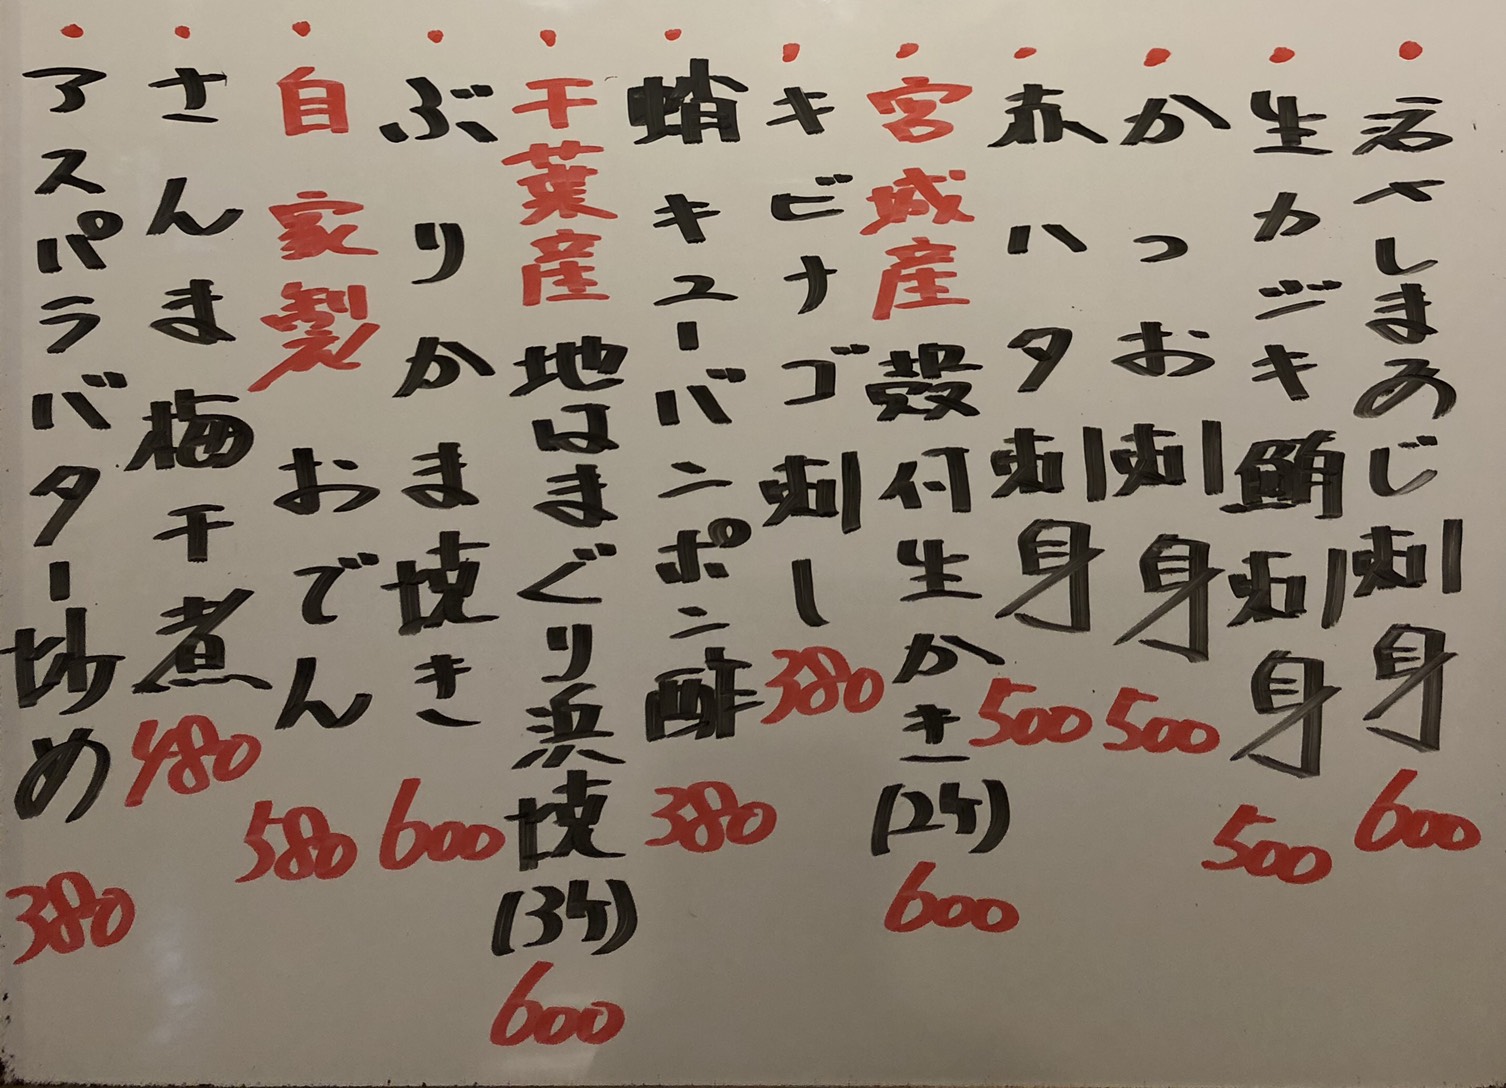 ・活〆しまあじ刺身 600
・生カジキ鮪刺身 500
・かつお刺身 500
・赤ハタ刺身 500
・宮城産 殻付生かき(2ケ) 600
・キビナゴ刺し 380
・蛸キューバンポン酢 380
・千葉産 地はまぐり浜焼(3ケ) 600
・ぶりかま焼き 600
・自家製 おでん 580
・さんま梅干煮 480
・アスパラバター炒め 380